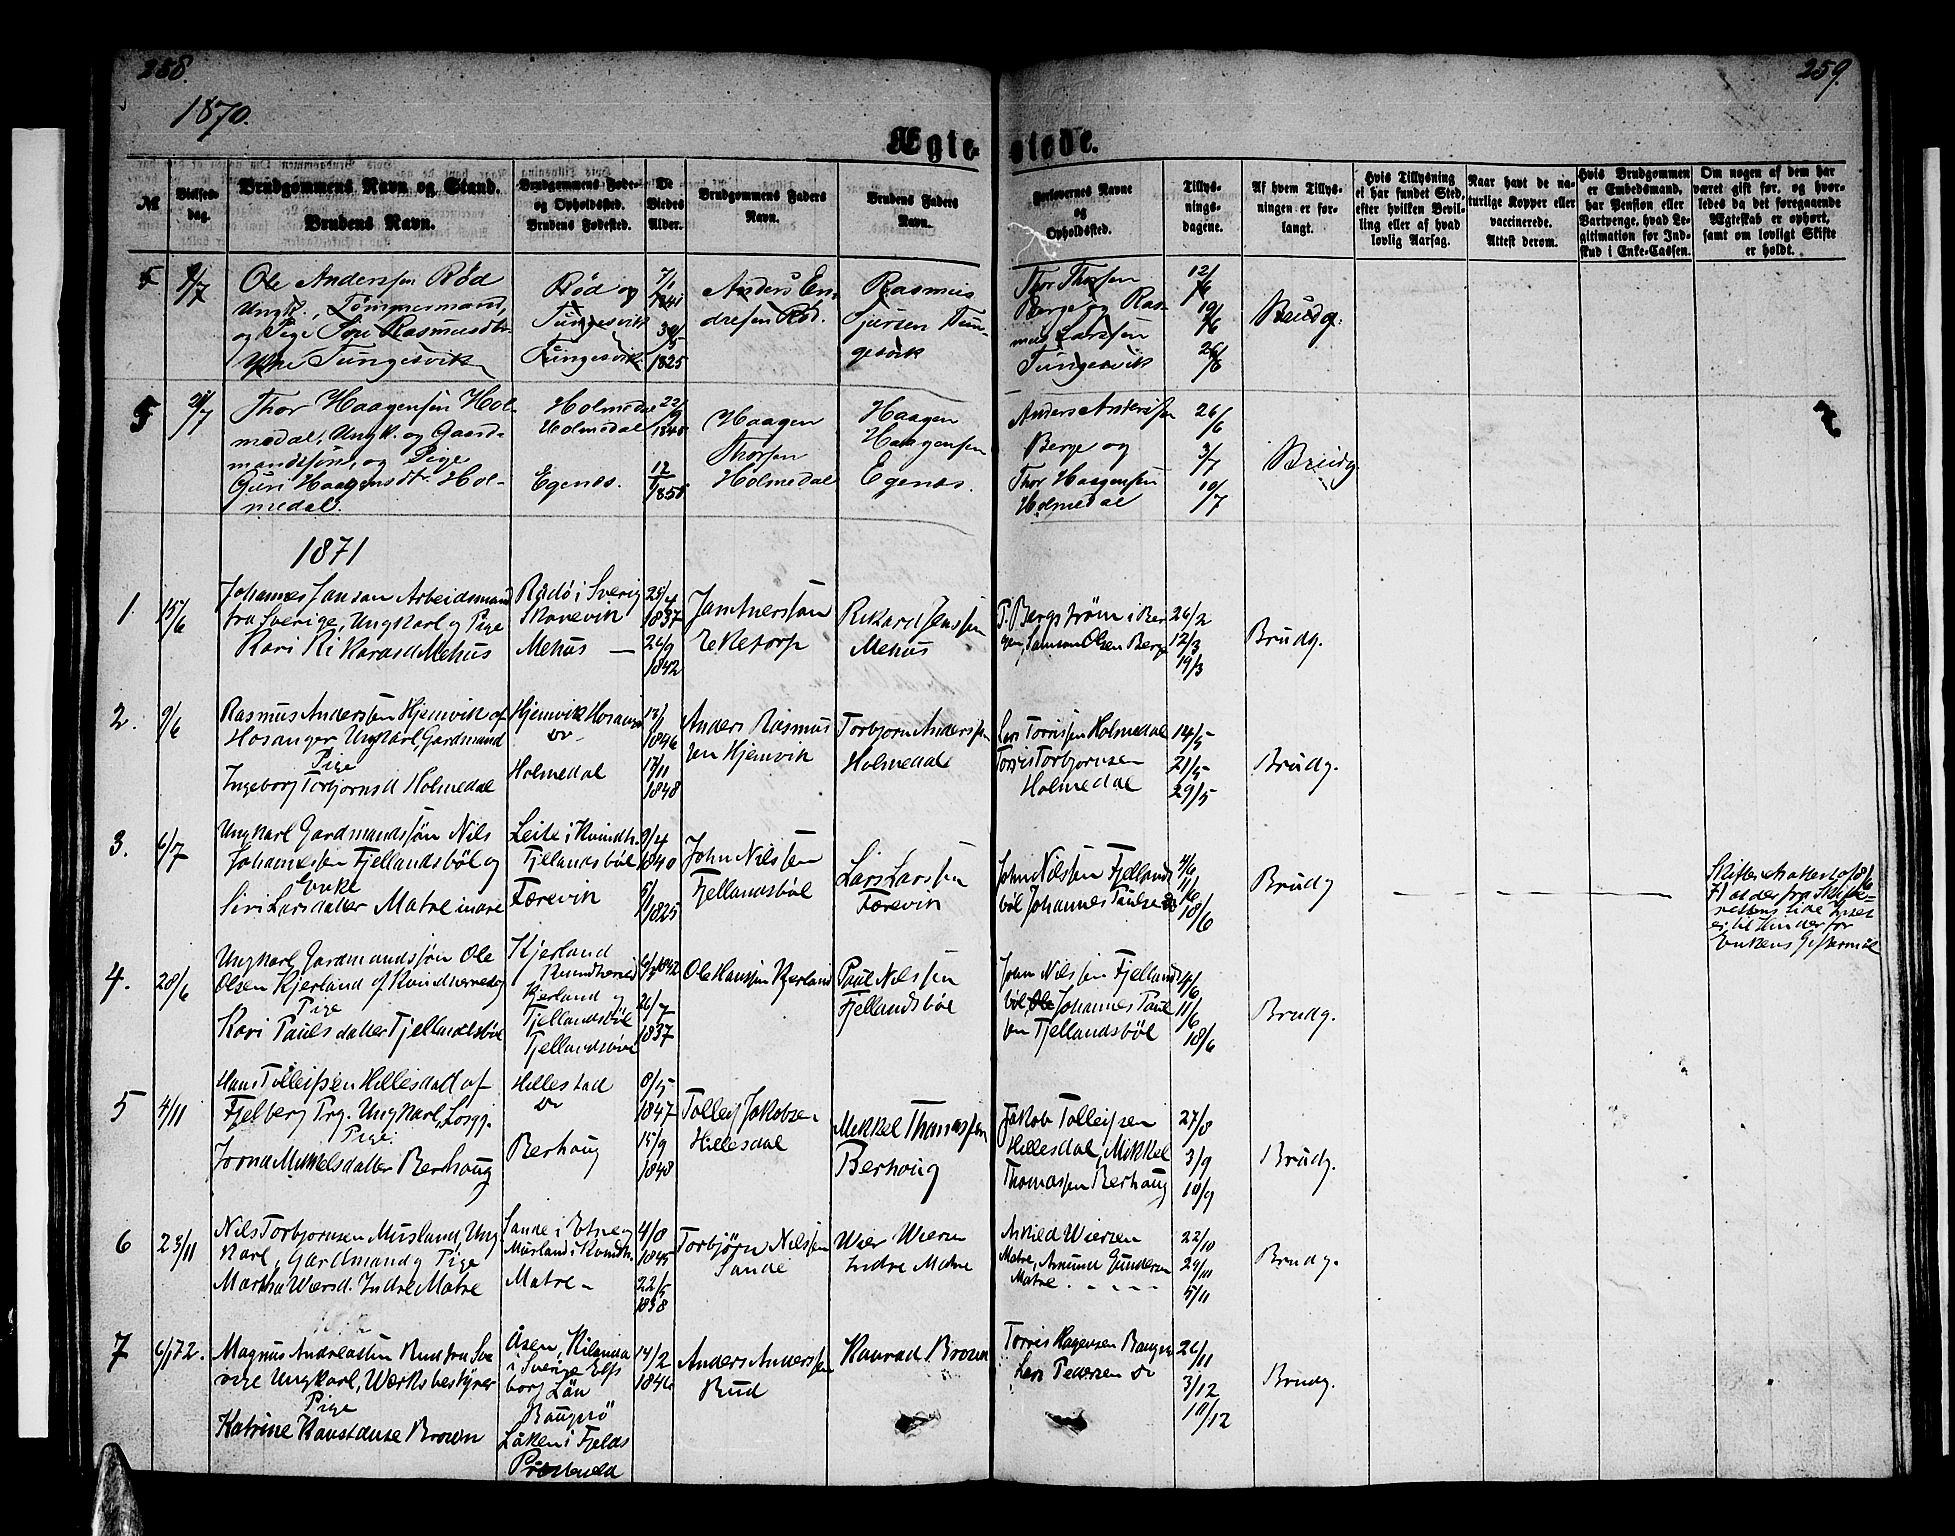 258.
259.
1870.
Ægte-
viede.
№
Vielses-
dag.
Brudgommens Navn og Stand.
Brudens Navn.
Brudgommens Føde-
og Opholdssted.
Brudens Fødested.
De
Viedes
Alder.
Brudgommens Faders
Navn.
Brudens Faders
Navn.
Forlovernes Navne
og
Opholdssted.
Tillys-
nings-
dagene.
Af hvem Tillys-
ningen er for-
langt.
Hvis Tillysning
ei har fundet Sted,
efter hvilken Bevil-
ling eller af hvad
lovlig Aarsag.
Naar havt de na-
turlige Kopper eller
vaccinerede.
Attest derom.
Hvis Brudgommen
er Embedsmand,
har Pension eller
Vartpenge, hvad Le-
gitimation for Ind-
skud i Enke-Cassen.
Om nogen af dem har
været gift før, og hvor-
ledes da det foregaaende
Ægteskab er ophørt,
samt om lovligt Skifte
er holdt.
Ole Anderssen Rød
Ungk., Tømmermand,
og Pige Siri Rasmusdtr.
Tungesvik
Rød og
Tungesvik
Tungesvik
1841
1825
Anders En-
dresen Rød.
Rasmus
Sjursen Tun-
gesvik
Thor Thorsen
Berge og Ras-
mus Larssen
Tungesvik
12/6
19/6
26/6
Brudg.
5
Thor Haagensen Hol-
medal, Ungk. og Gaard-
mandssøn, og Pige
Guri Haagensdtr. Hol-
medal.
Holmedal
Holmedal
Egenæs.
Haagen
Thorsen
Holmedal
Haagen
Haagensen
Egenæs.
Anders Anderssen
Berge og
Thor Haagensen
Holmedal
26/6
3/7
10/7
Brudg.
1871
1
15/6
Johannes Janson Arbeidsmand
fra Sverige, Ungkarl og Pige
Kari Rikarasd Mehus
Rådø i Sverig
Skonevik
Mehus —
1837
26/9
1842
Eketorp
Rikard Jenssen
Mehus
P. Bergstrøm i Ber
gen, Samson Olsen Berge
26/2
12/3
19/3
Brudg.
2.
9/6
Rasmus Anderssen Hjemvik af
Hosanger Ungkarl, Gardmand
Pige
Ingeborg Torbjørnsd Holmedal
Hjemvik Hosanger
Holmedal
1846
17/11
1848
Anders Rasmus
sen Hjemvik
Torbjørn Anderssen
Holmedal
Lars Torrissen Holmedal
Torris Torbjørnsen
Holmedal
14/5
21/5
29/5
Brudg.
3.
6/7
Ungkarl Gardmandssøn Nils
Johannessen Fjellandsbøl og
Enke
Siri Larsdatter Matre indre
Leite i Kvindh.
Fjellandsbøl
Færevik
9/4
1840
5/1
1825
John Nilssen
Fjellandsbøl
Lars Larssen
Færevik
John Nilssen Fjellands
bøl Johannes Paulsen
4/6
11/6
18/6
Brudg
Enkens Giftermål
4.
28/6
Ungkarl Gardmandssøn Ole
Olsen Kjerland af Kvindherred og
Pige
Kari Pauls datter Fjellandsbøl
Kjerland
Kvindherred
Kjerland og
Fjellandsbøl
Fjellandsbøl
1842
26/7
1837
Ole Hanssen Kjerland
Paul Nilssen
Fjellandsbøl
John Nilssen Fjellands
bøl, Ole Johannes Paul
sen Fjellandsbøl
4/6
11/6
18/6
Brudg.
5
4/11
Hans Tolleifsen Hillesdal af
Fjelberg Prg. Ungkarl, Losgj.
Pige
Jorna Mikkelsdatter Berhoug
Hillestad
Berhoug
8/5
1847
15/9
1848
Tolleif Jakobsen
Hillesdal
Mikkel Thomassen
Berhoug
Jakob Tolleifsen
Hillesdal, Mikkel
Thomassen Berhoug
27/8
3/9
10/9
Brudg.
6
23/11
Nils Torbjørnsen Musland, Ung
karl, Gardmand og Pige
Martha Wiersd. Indre Matre
Sande i Etne og
Musland i Kvindh.
Matre –
4/8
1845
22/5
1838
Torbjørn Nilssen
Sande
Wier Wiersen
Indre Matre
Askild Wiersen
Matre, Amund Gundersen
Matre
22/10
29/11
5/11
Brudg.
7
6/1 72.
Magnus Andreassen Rud fra Sve
rige Ungkarl, Værksbestyrer
Pige
Katrine Konstanse Brown
Åsen, Kilanda
i Sverige Elfs
borg Län
Låken i Fjelds
Præstegield
14/2
1846
Anders Anderssen
Rud
Konrad Brown
Torris Hagensen
Lars Pedersen do
26/11
3/12
10/12
Brudg.